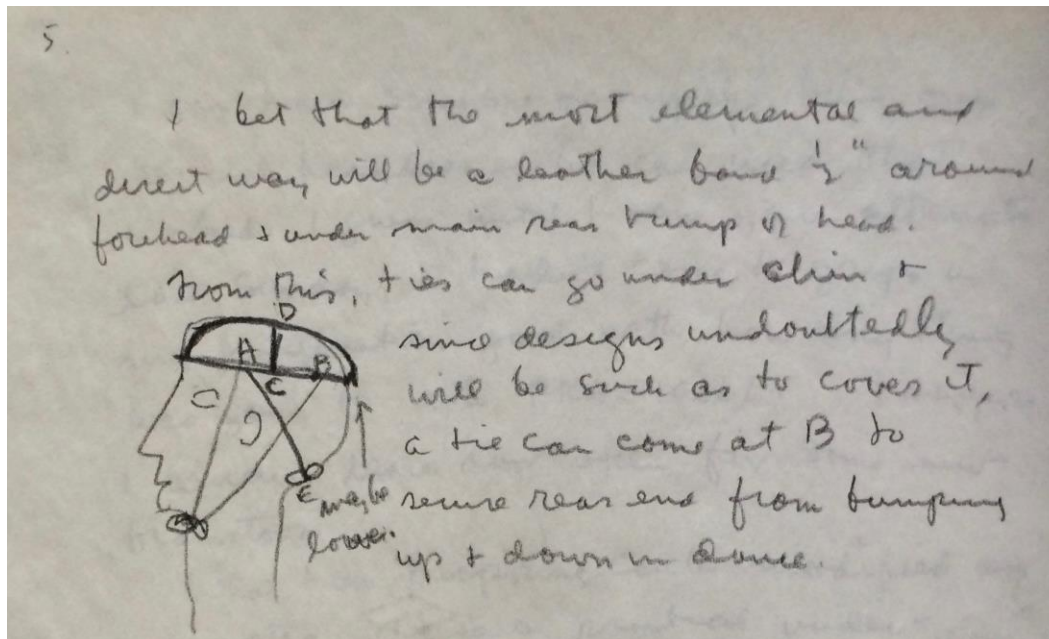 5.
I bet that the most elemental and
direct way will be a leather band ½" around
forehead & under main rear bump of head.
From this, ties can go under chin &
since designs undoubtedly
will be such as to cover it,
a tie can come at B to
secure rear end from bumping
up & down in dance.
D
A
B
C
E
maybe
lower.